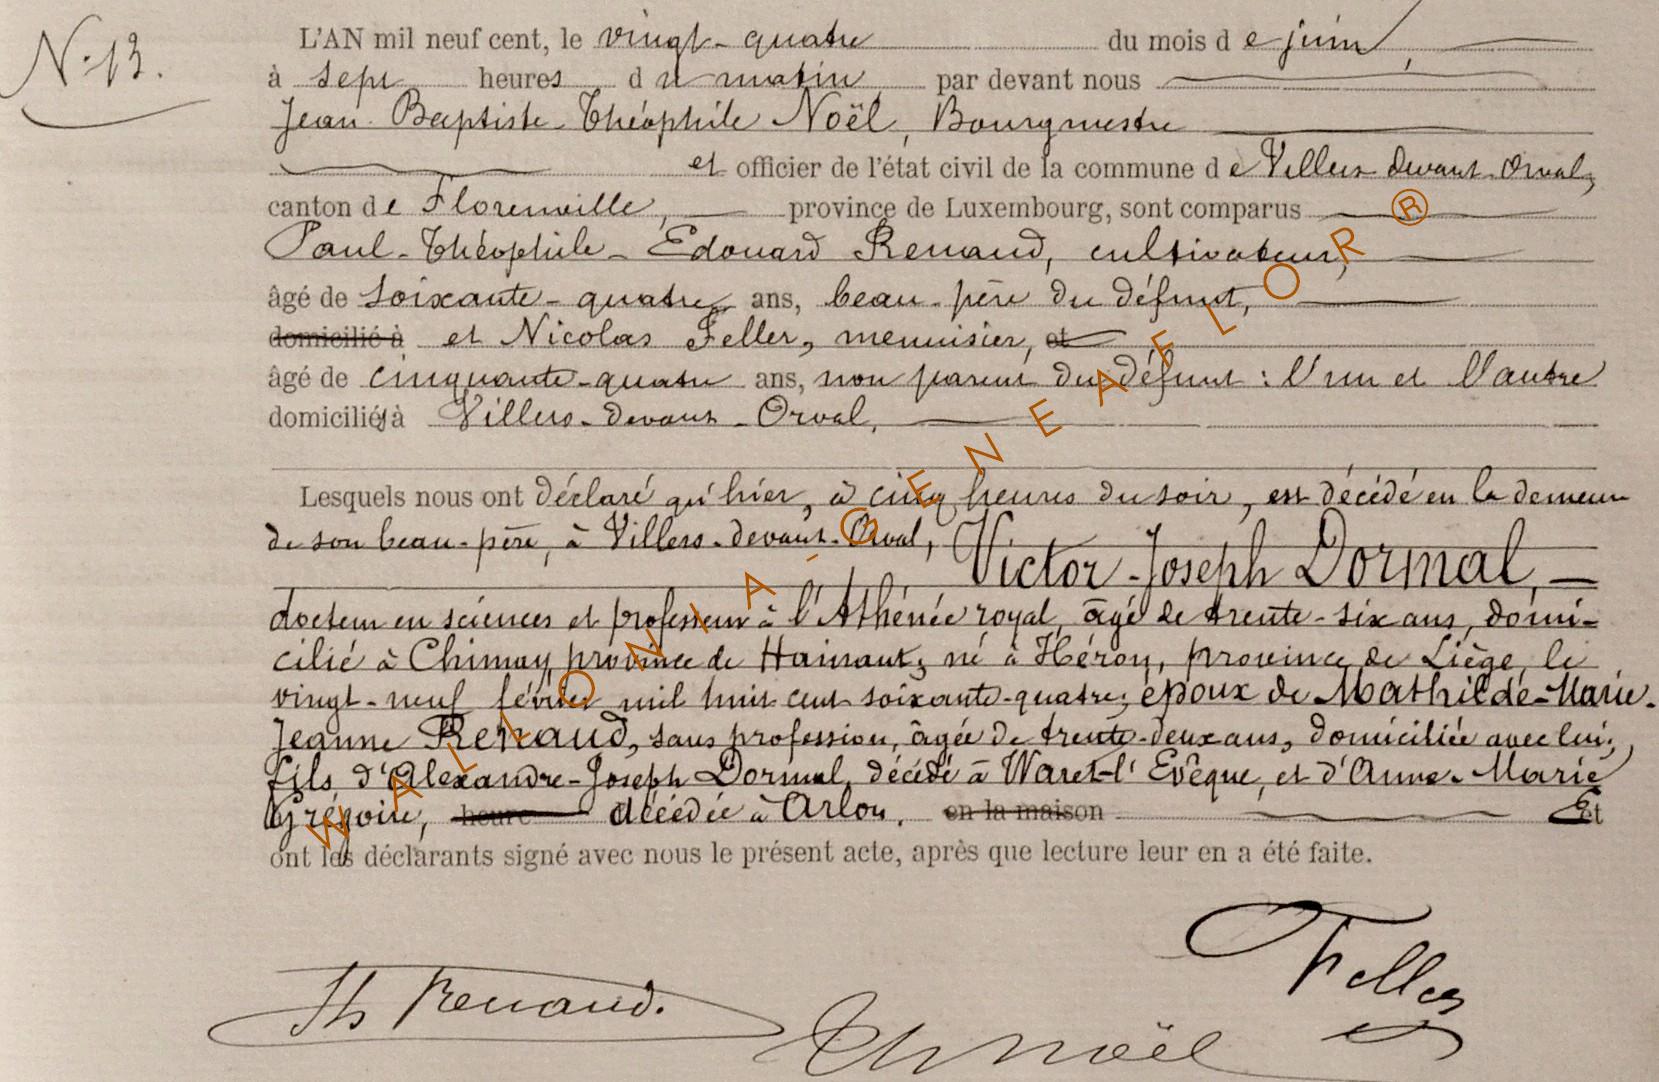 N. 13.
L'AN mil neuf cent, le vingt-quatre du mois de juin,
à sept heures du matin, par devant nous
Jean-Baptiste-Théophile Noël, Bourgmestre
et officier de l'état civil de la commune de Villers devant-Orval,
canton de Florenville, province de Luxembourg, sont comparus
Paul-Théophile-Edouard Renaud, cultivateur,
âgé de soixante-quatre ans, beau-père du défunt,
domicilié à et Nicolas Feller, menuisier, et
âgé de cinquante-quatre ans, non parent du défunt : l'un et l'autre
domiciliés à Villers-devant-Orval,
Lesquels nous ont déclaré qu'hier, à cinq heures du soir, est décédé en la demeure
de son beau-père, à Villers-devant-Orval, Victor-Joseph Dormal,
docteur en sciences et professeur à l'Athénée royal, âgé de trente-six ans, domi-
cilié à Chimay, province de Hainaut, né à Héron, province de Liège, le
vingt-neuf février mil huit cent soixante-quatre, époux de Mathilde-Marie-
Jeanne Renaud, sans profession, âgée de trente-deux ans, domiciliée avec lui;
fils d'Alexandre-Joseph Dormal, décédé à Waret-l'Evêque, et d'Anne-Marie
Grégoire, heure décédée à Arlon. en la maison Et
ont les déclarants signé avec nous le présent acte, après que lecture leur en a été faite.
Feller
Th Renaud.
Th Noël
WALLONIA-GENEAFLOR®